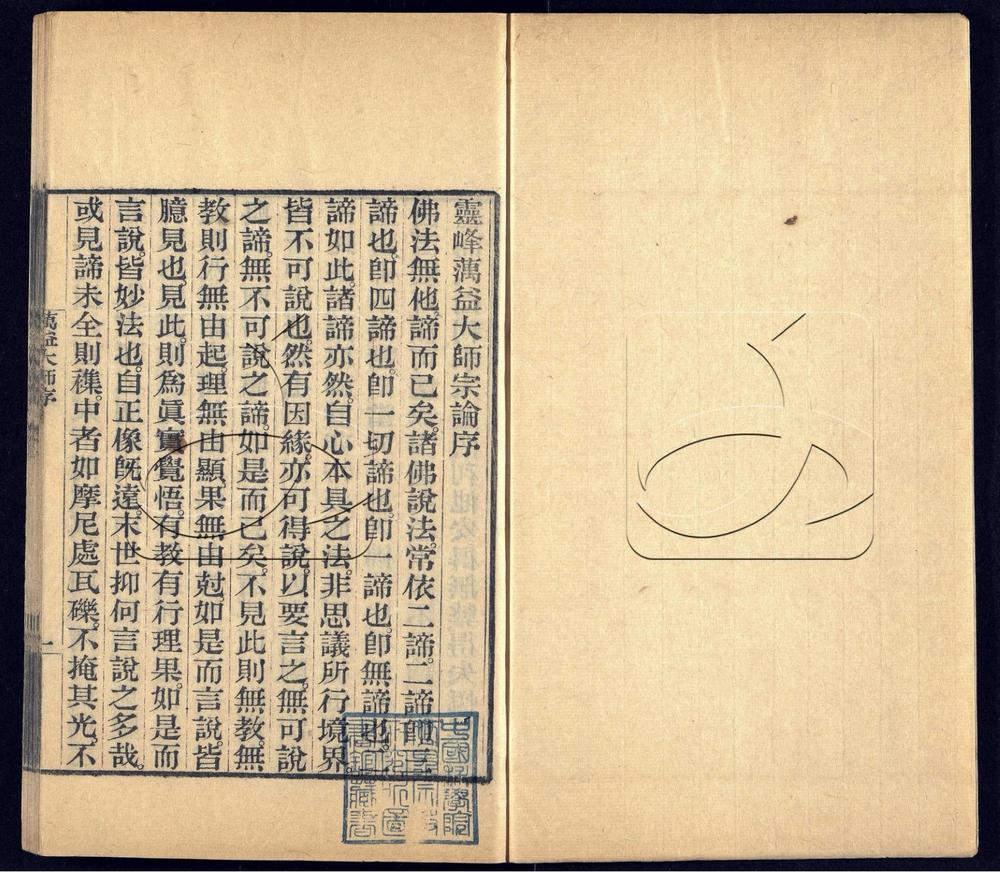 靈峰蕅益大師宗論序
佛法無他。諦而已矣。諸佛說法。常依二諦。二諦卽
諦也。卽四諦也。卽一切諦也。卽一諦也。卽無諦也。一
諦如此。諸諦亦然。自心本具之法。非思議所行境界。
皆不可說也。然有因緣。亦可得說。以要言之。無可說
之諦。無不可說之諦。如是而已矣。不見此則無教。無
教則行無由起。理無由顯。果無由尅。如是而言說。皆
臆見也。見此。則爲眞實覺悟。有教有行理果。如是而
言說。皆妙法也。自正像旣遠。末世抑何言說之多哉。
或見諦未全則襍。中者如摩尼處瓦礫。不掩其光。不
蕅益大師序
一